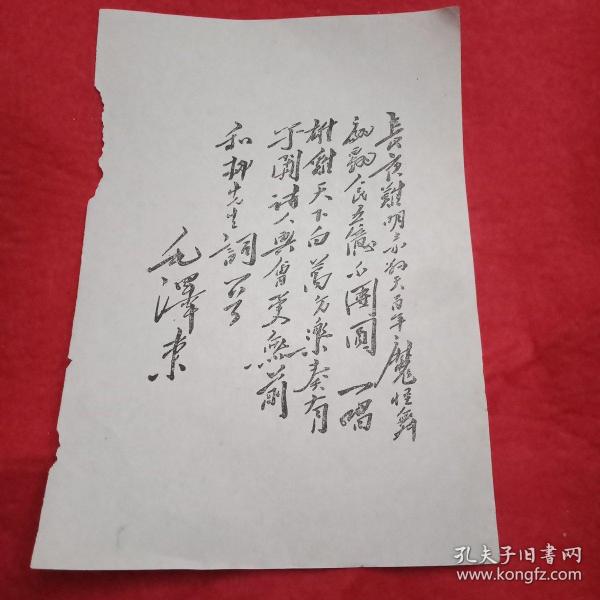 長夜難明赤縣天百年魔怪舞
翩躚人民五億不團圓一唱
雄雞天下白萬方樂奏有
于闐詩人興會更無前
和柳先生詞一首
毛澤東
孔夫子旧书网
www.kongfz.com